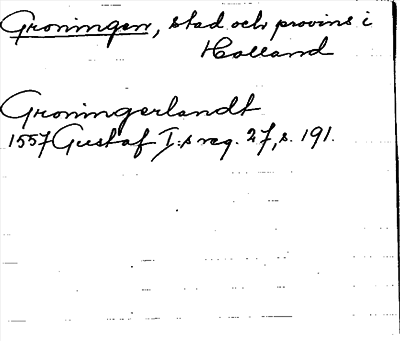 Groningen, stad och provins i
Holland
Groningerlandt
1557 Gustaf I:s reg. 27, s. 191.